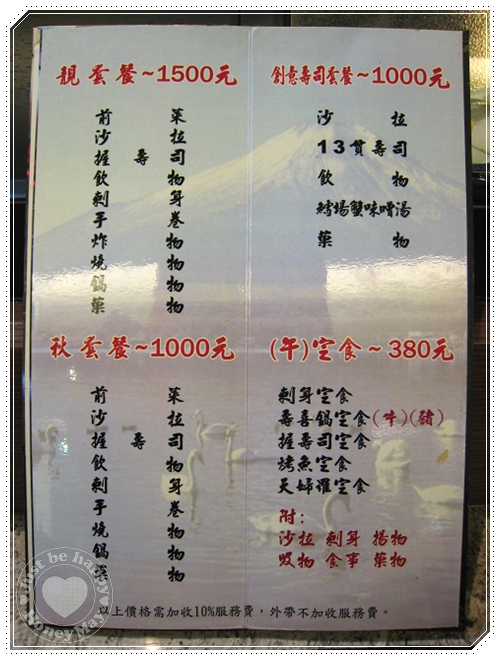 靚套餐~1500元
前菜
沙拉
握壽司
飲物
刺身
手卷
炸物
燒物
鍋物
菓物
創意壽司套餐~1000元
沙拉
13貫壽司
飲物
鱈場蟹味噌湯
菓物
秋套餐~1000元
前菜
沙拉
握壽司
飲物
刺身
手卷
燒物
鍋物
菓物
(午)定食~380元
刺身定食
壽喜鍋定食(牛)(豬)
握壽司定食
烤魚定食
天婦羅定食
附:
沙拉 刺身 揚物
吸物 食事 菓物
以上價格需加收10%服務費，外帶不加收服務費。
Just be happy
HoneyMay